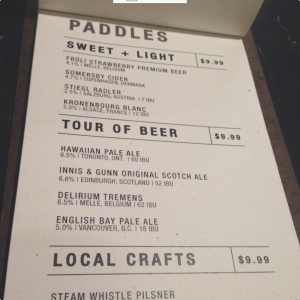 PADDLES
SWEET + LIGHT $9.99
FRÜLI STRAWBERRY PREMIUM BEER
4.1% | MELLE, BELGIUM
SOMERSBY CIDER
4.7% | COPENHAGEN, DENMARK
STIEGL RADLER
2.5% | SALZBURG, AUSTRIA | 7 IBU
KRONENBOURG BLANC
5.0% | ALSACE, FRANCE | 12 IBU
TOUR OF BEER $9.99
HAWAIIAN PALE ALE
6.5% | TORONTO, ONT. | 60 IBU
INNIS & GUNN ORIGINAL SCOTCH ALE
6.6% | EDINBURGH, SCOTLAND | 52 IBU
DELIRIUM TREMENS
8.5% | MELLE, BELGIUM | 62 IBU
ENGLISH BAY PALE ALE
5.0% | VANCOUVER, B.C. | 18 IBU
LOCAL CRAFTS $9.99
STEAM WHISTLE PILSNER